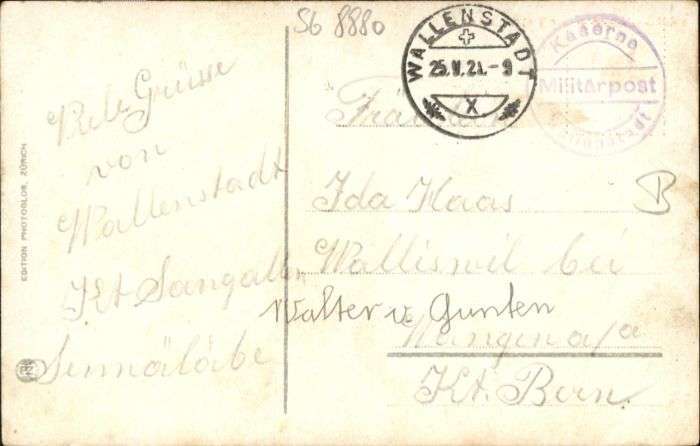 S6 8880
WALLENSTADT
25.V.21.-9
X
Kaserne
Militärpost
Wallenstadt
Viele Grüsse
von
Wallenstadt
Kt. Sangallen
EDITION PHOTOGLOB, ZÜRICH
Fräulein
Ida Haas
B
Walliswil bei
Walter v. Gunten
Wangen a/a
Kt. Bern.